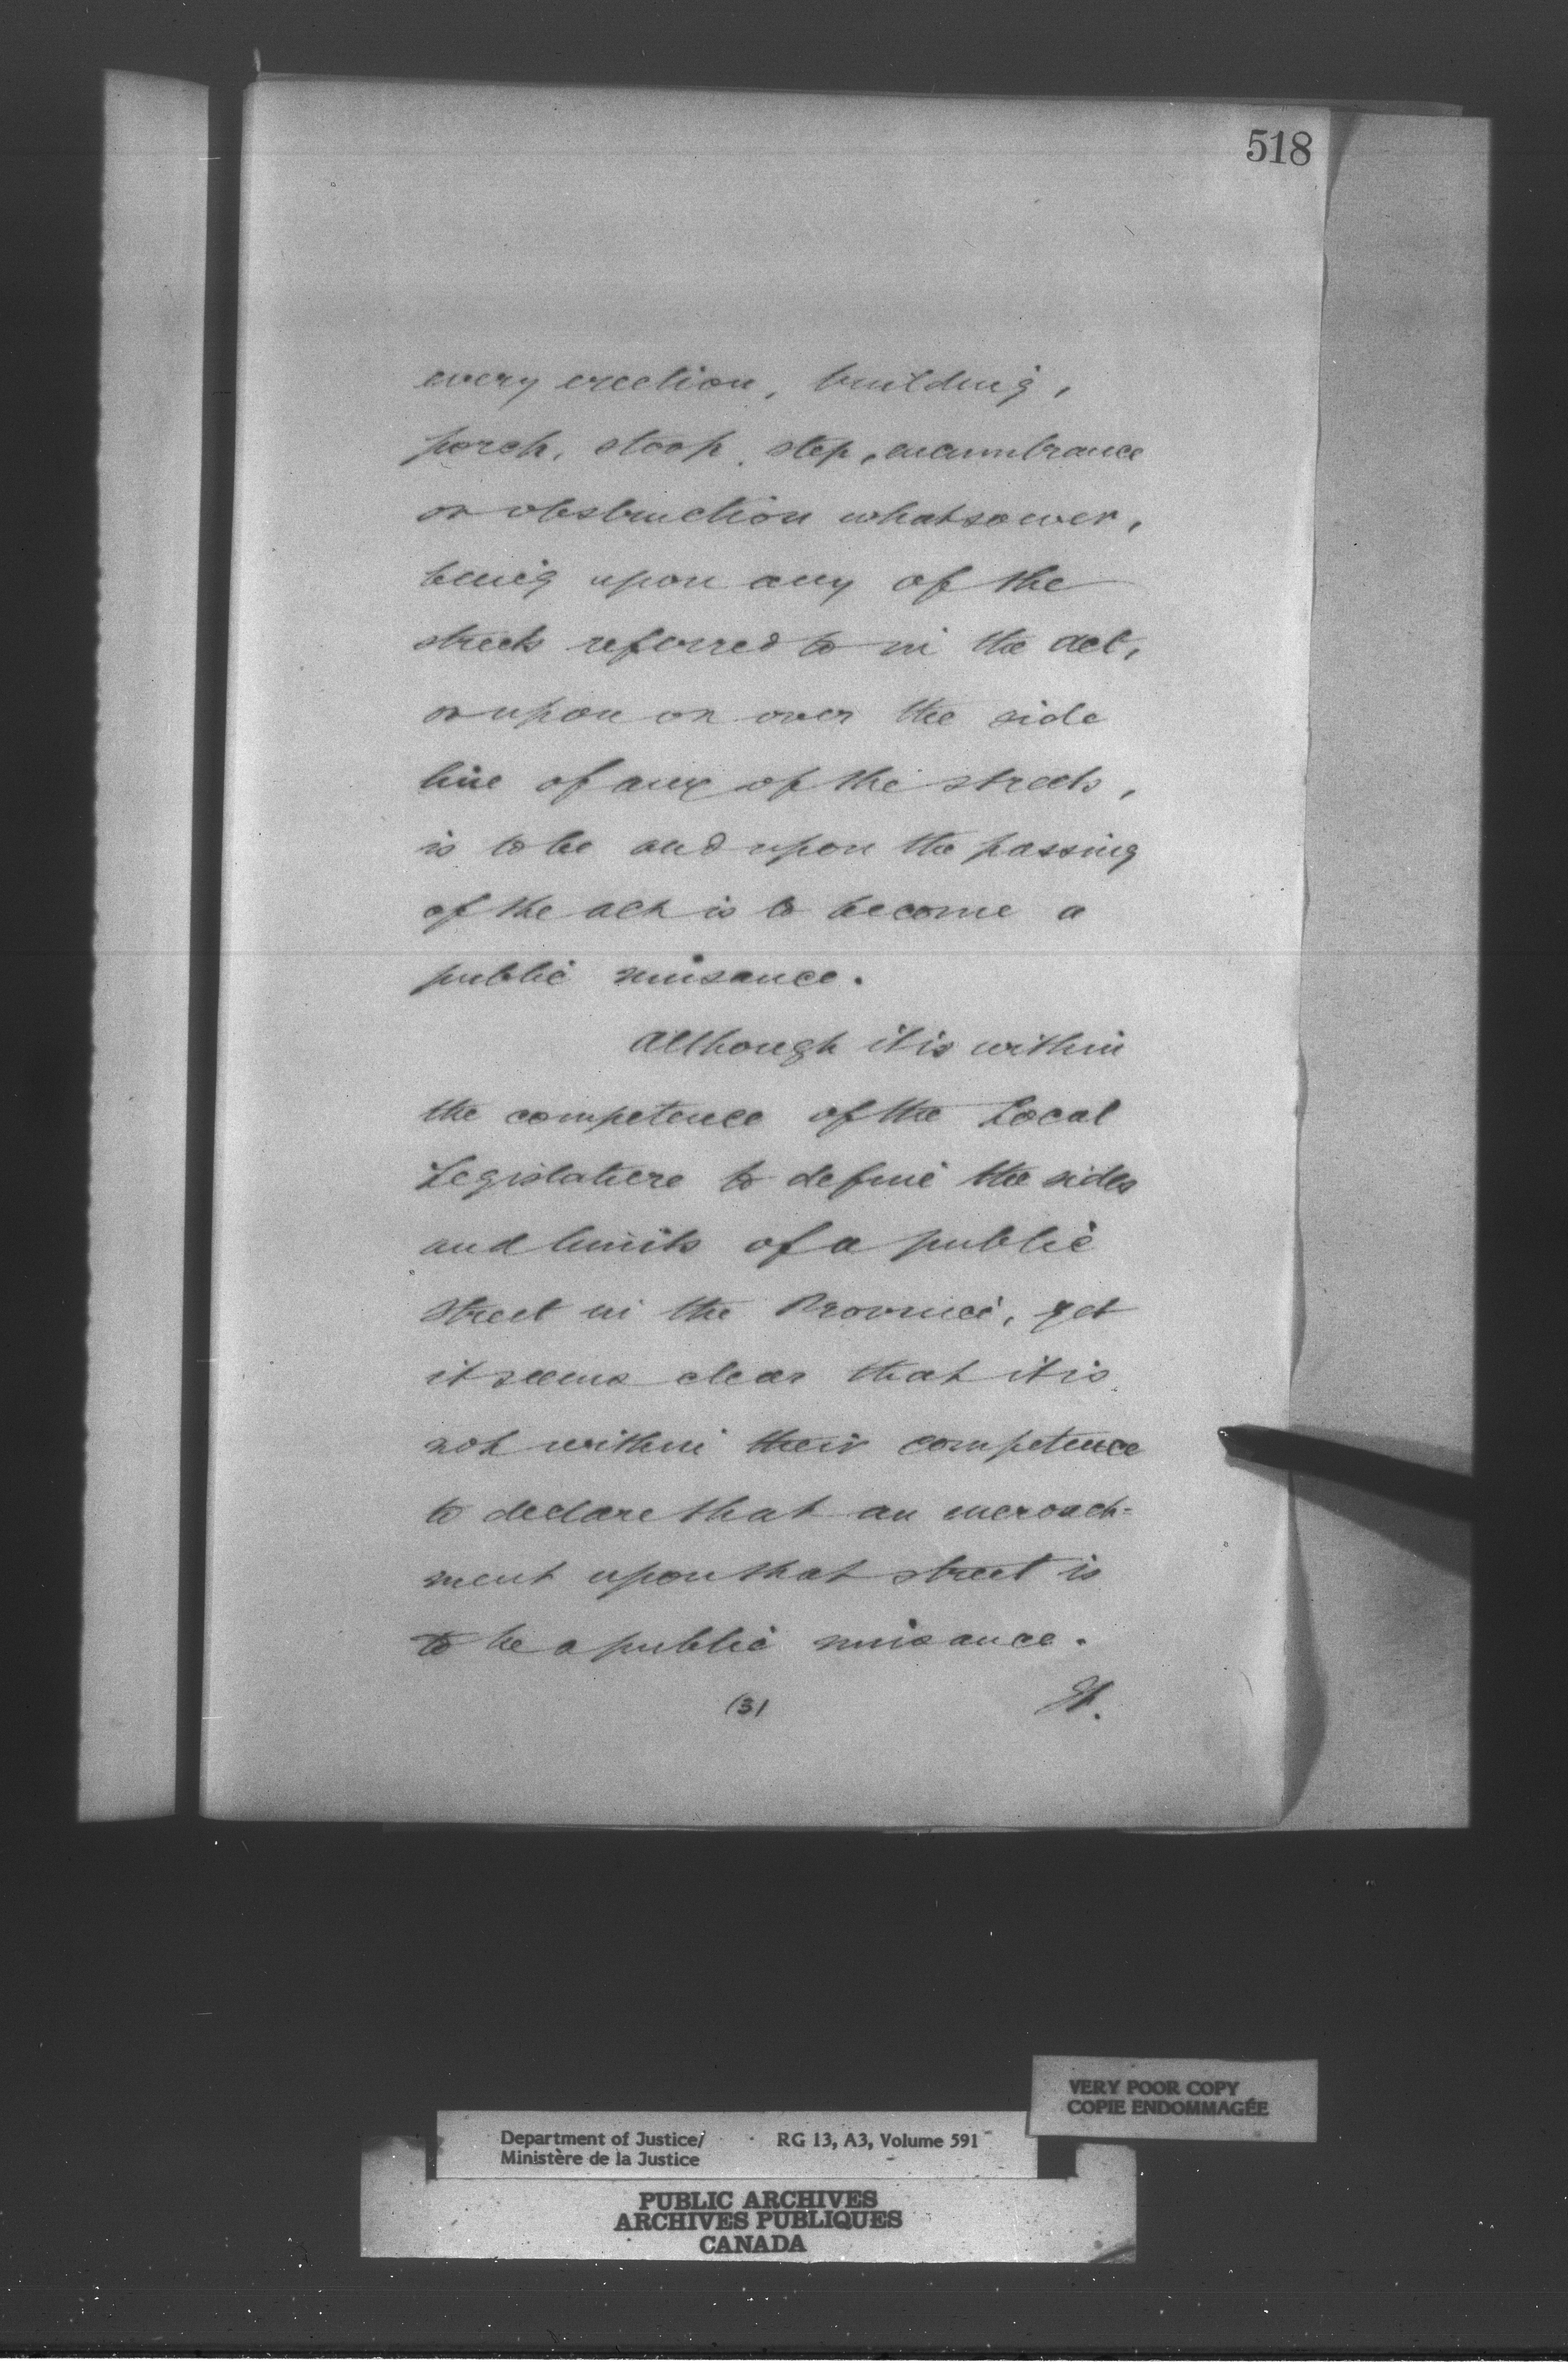 518
every erection, building,
porch, stoop, step, incumbrance
or obstruction whatsoever,
being upon any of the
streets referred to in the act,
or upon or over the side
line of any of the streets,
is to be and upon the passing
of the act is to become a
public nuisance.
Although it is within
the competence of the Local
Legislature to define the sides
and limits of a public
street in the Province, yet
it seems clear that it is
not within their competence
to declare that an encroach-
ment upon that street is
to be a public nuisance.
(3)
VERY POOR COPY
COPIE ENDOMMAGÉE
Department of Justice/ RG 13, A3, Volume 591
Ministère de la Justice
PUBLIC ARCHIVES
ARCHIVES PUBLIQUES
CANADA